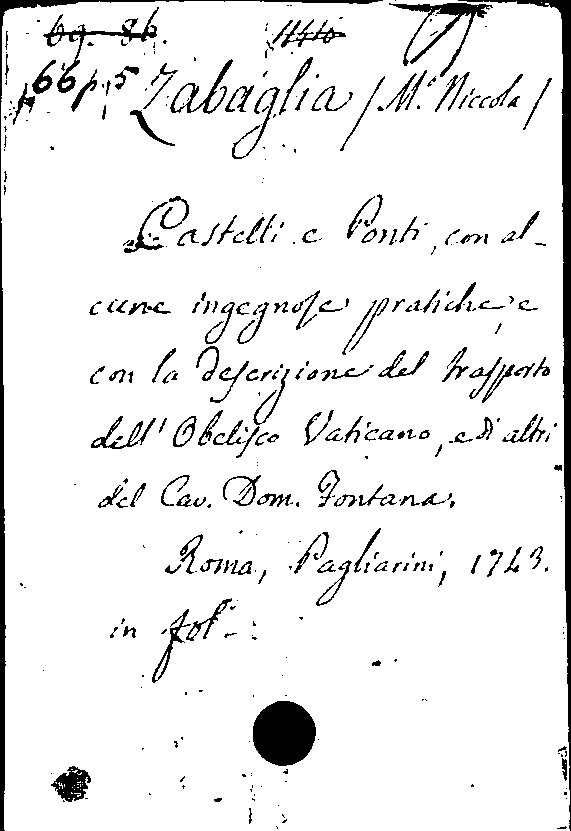 69. 86.
66 p. 5 Zabaglia / M.º Niccola /
Castelli e Ponti, con al-
cune ingegnose pratiche, e
con la descrizione del trasporto
dell' Obelisco Vaticano, e di altri
del Cav. Dom. Fontana.
Roma, Pagliarini, 1743.
in folº.